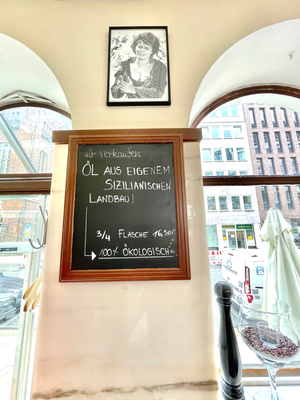 wir verkaufen
ÖL AUS EIGENEM
SIZILIANISCHEN
LANDBAU!
3/4 FLASCHE 16,50€
100% ÖKOLOGISCH